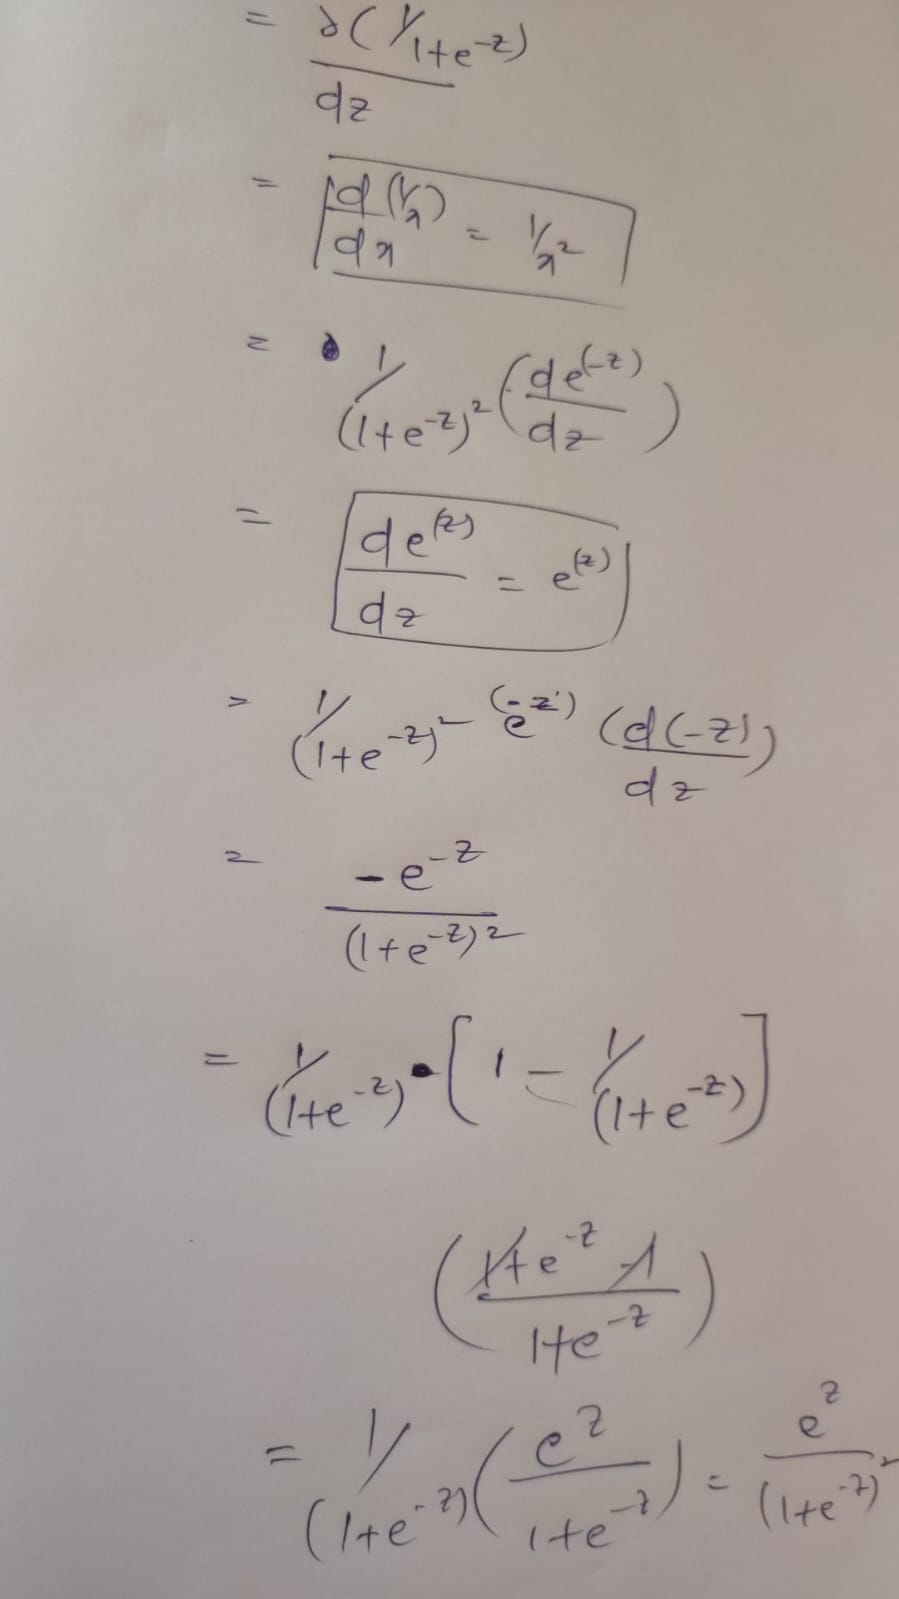 = d(1/1+e^-z)
dz
= d(1/x)/dx = 1/x²
= 1/(1+e^-z)² (de^(-z)/dz)
= de^(z)/dz = e^(z)
= 1/(1+e^-z)² e^(-z) (d(-z)/dz)
= -e^-z/(1+e^-z)²
= 1/(1+e^-z) · [1 - 1/(1+e^-z)]
(1+e^-z -1/1+e^-z)
= 1/(1+e^-z) (e^z/1+e^-z) = e^z/(1+e^-z)²